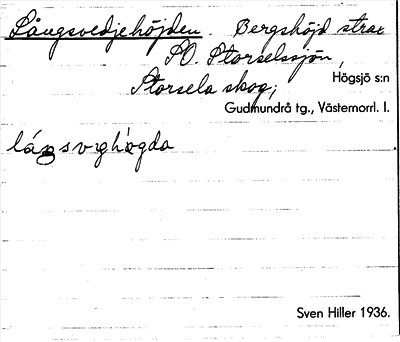 Långsvedjehöjden. Bergshöjd strax
SO. Storselssjön,
Storsela skog;
Högsjö s:n
Gudmundrå tg., Västernorrl. l.
Sven Hiller 1936.